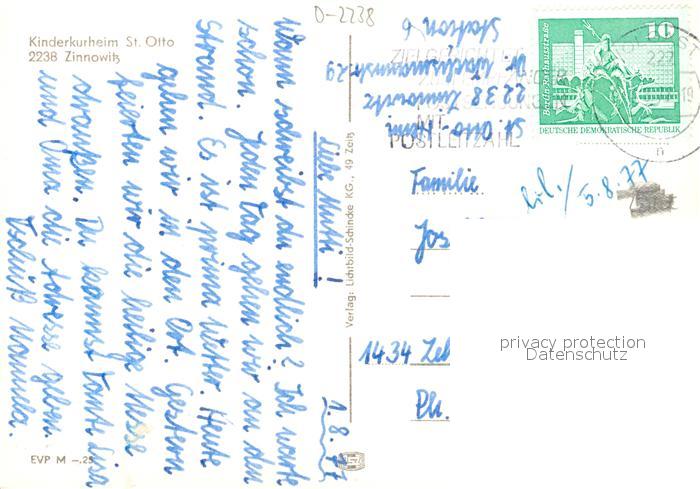 D-2238
Kinderkurheim St. Otto
2238 Zinnowitz
1.8.77
Liebe Mutti!
Wann schreibst du endlich? Ich warte
schon. Jeden Tag gehen wir an den
Strand. Es ist prima Wetter. Heute
gehen wir in den Ort. Gestern
feierten wir die heilige Messe
draußen. Du kannst Tante Lisa
und Oma die Adresse geben.
Tschüß Manuela.
EVP M -.25
Verlag: Lichtbild-Schincke KG., 49 Zeitz
St. Otto-Heim
2238 Zinnowitz
Dr. Wachsmannstr. 29
Station 6
MIT
POSTLEITZAHL
10
Berlin, Rathausstraße
DEUTSCHE DEMOKRATISCHE REPUBLIK
Familie
Jos
1434 Zeh
Pl.
5.8.77
privacy protection
Datenschutz